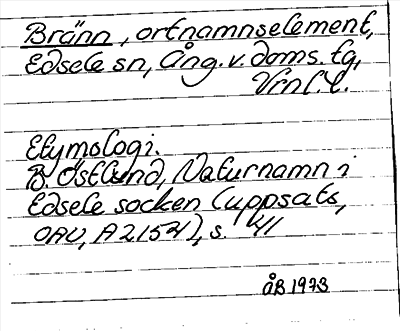 Bränn, ortnamnselement,
Edsele sn, Ång. v. doms. tg,
Vrnl. l.
Etymologi.
B. Östlund, Naturnamn i
Edsele socken (uppsats,
OAU, A 2154), s. 41
ÅB 1973